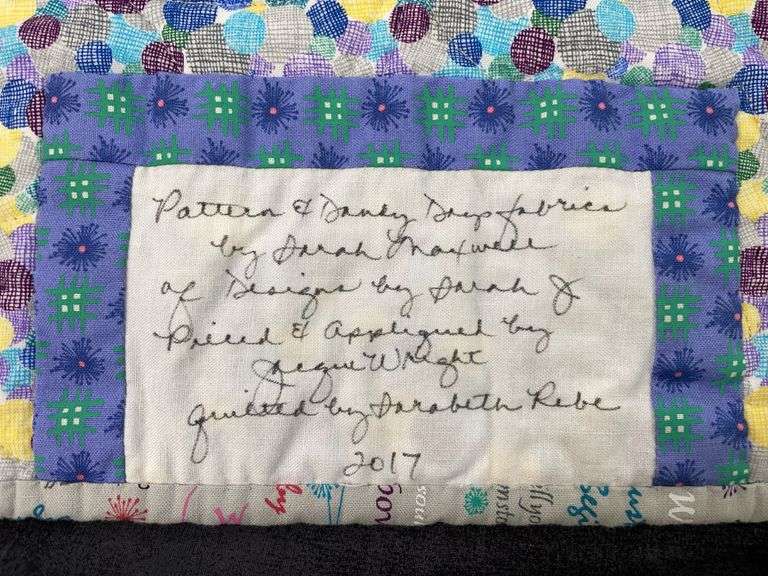 Pattern & Dandy Days fabrics
by Sarah Maxwell
of Designs by Sarah J
Pieced & Appliqued by
Jacque Wright
quilted by Sarabeth Rebe
2017